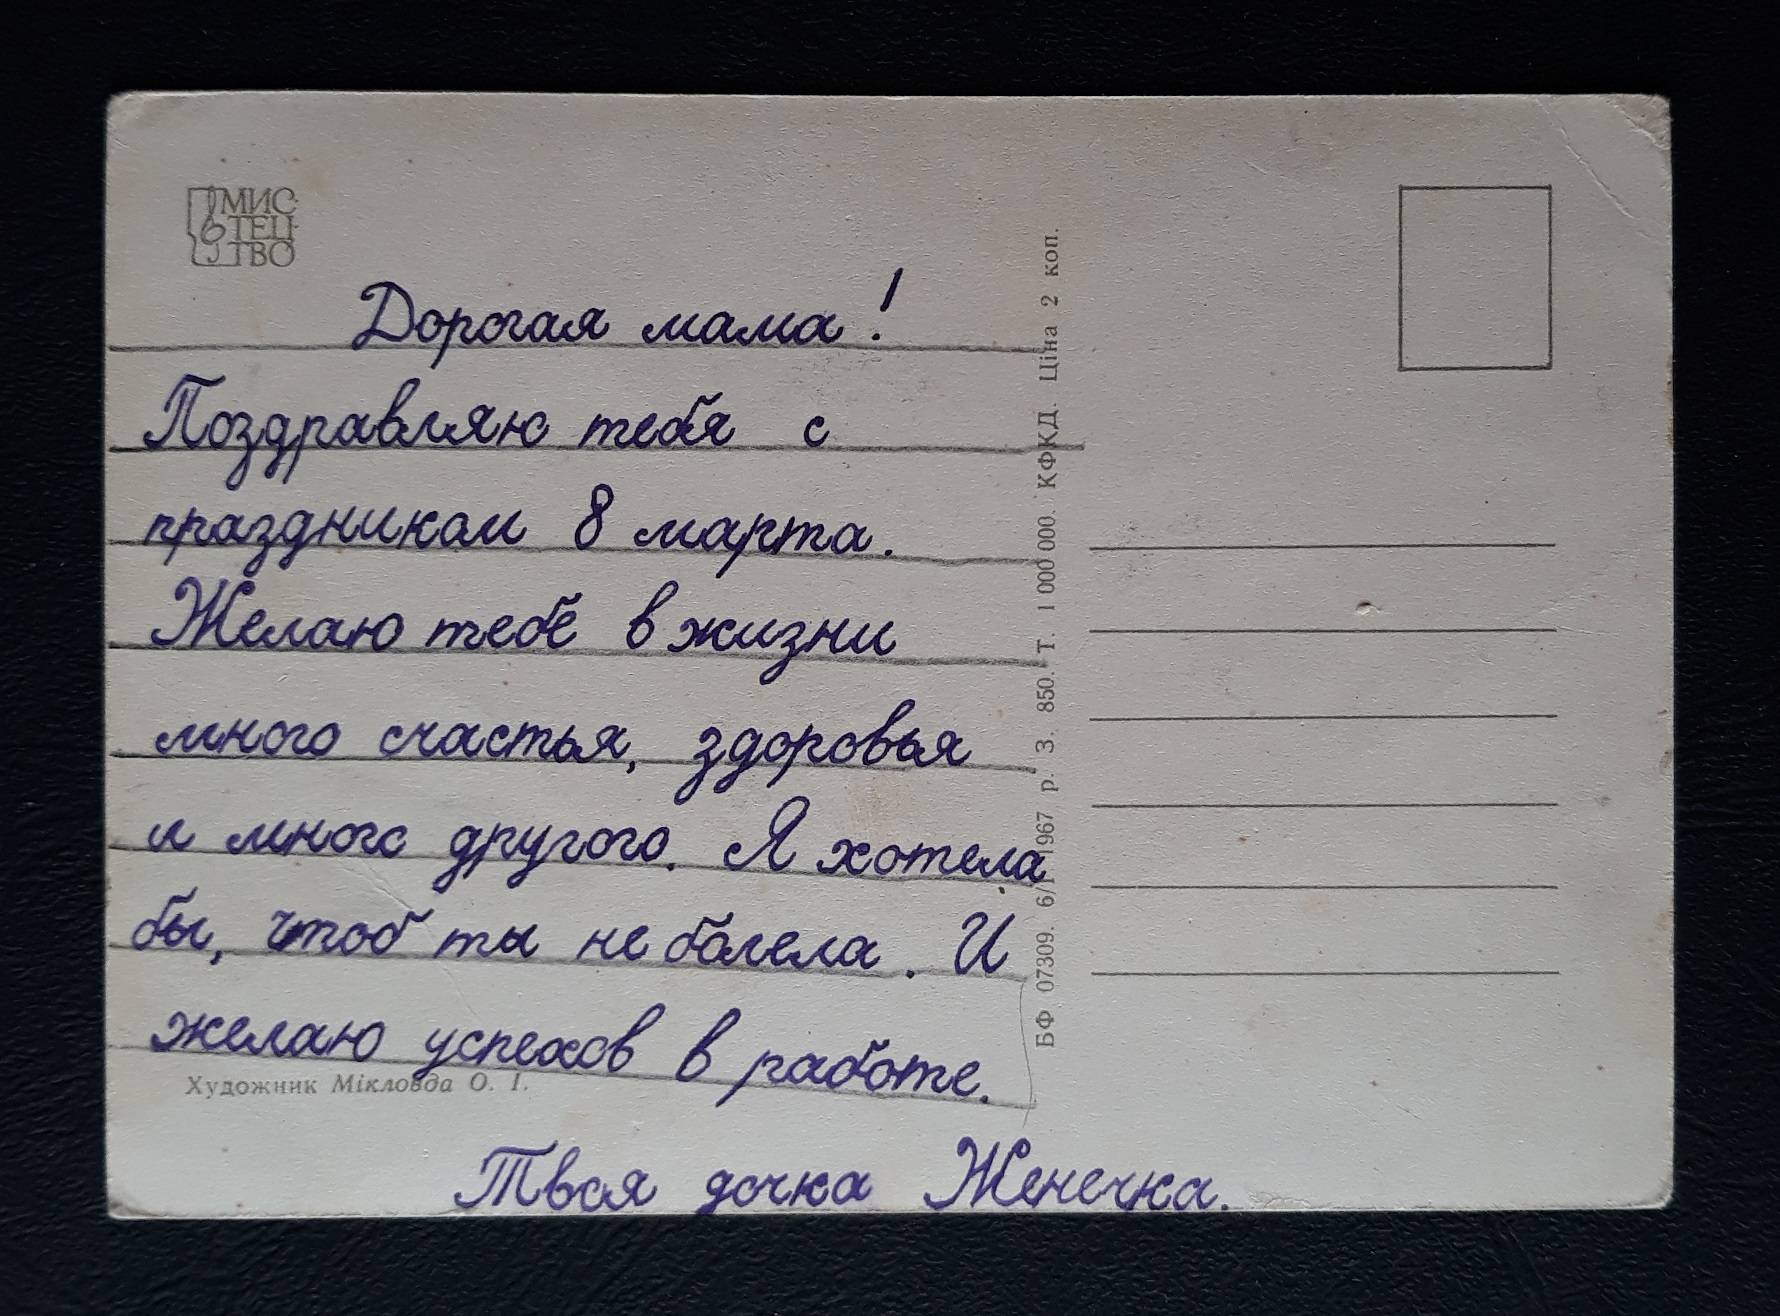 МИС-
ТЕЦ-
ТВО
Дорогая мама!
Поздравляю тебя с
праздником 8 марта.
Желаю тебе в жизни
много счастья, здоровья
и много другого. Я хотела
бы, чтоб ты не болела. И
желаю успехов в работе.
Художник Мікловда О. І.
Твоя дочка Женечка.
БФ 07309. 6/І 1967 р. З. 850. Т. 1 000 000. КФКД. Ціна 2 коп.